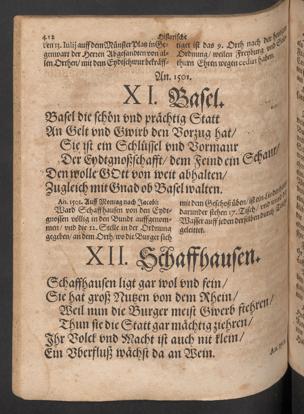 412 Historische
den 13. Iulij auff dem Münster Platz in Ge-
genwart der Herren Abgesandten von al-
len Orthen / mit dem Eydtschwur bekräff-
tiger ist das 9. Orth nach der
Ordnung / weilen Freyburg und
thurn Ehren wegen cediert haben.
An. 1501.
XI. Basel.
Basel die schön und prächtig Statt
An Gelt und Gwirb den Vorzug hat /
Sie ist ein Schlüssel und Vormaur
Der Eydtgnoßschafft / dem Feind ein Schaur /
Den wolle GOtt von weit abhalten /
Zugleich mit Gnad ob Basel walten.
An. 1501. Auff Montag nach Jacobi
Ward Schaffhausen von den Eydt-
gnossen völlig in den Bundt auffgenom-
men / und die 12. Stelle in der Ordnung
gegeben / an dem Orth / wo die Burger sich
mit dem Geschoß üben / ist ein Lindenbaum
darunder stehen 17. Tisch / und wird das
Wasser auff jeden derselben durch
geleitet.
XII. Schaffhausen.
Schaffhausen ligt gar wol und fein /
Sie hat groß Nutzen von dem Rhein /
Weil nun die Burger meist Gwerb fiehren /
Thun sie die Statt gar mächtig ziehren /
Ihr Volck und Macht ist auch nit klein /
Ein Vberfluß wächst da an Wein.